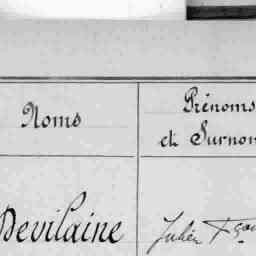 Noms
Prénoms
et Surnom
Devilaine
Julien